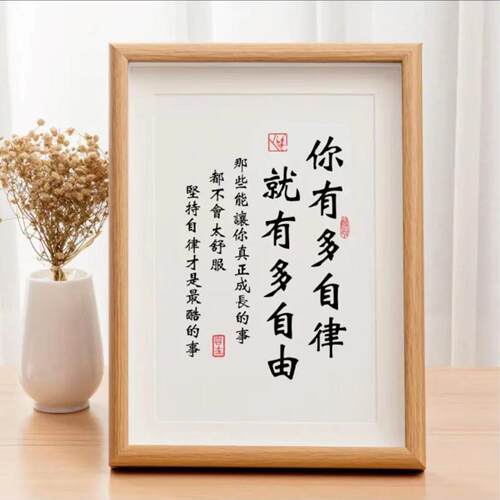 你有多自律
就有多自由
那些能讓你真正成長的事
都不會太舒服
堅持自律才是最酷的事